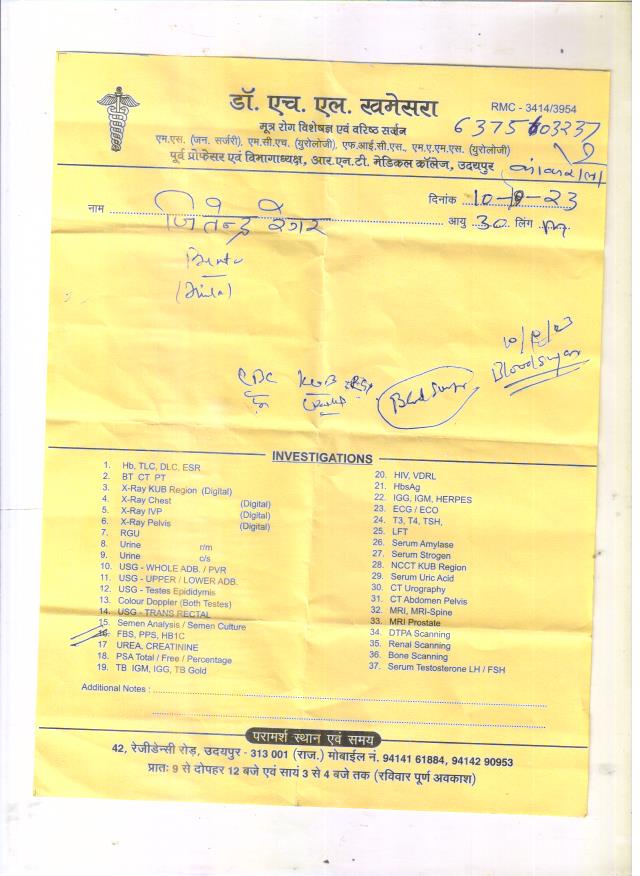 डॉ. एच. एल. खमेसरा
RMC - 3414/3954
मूत्र रोग विशेषज्ञ एवं वरिष्ठ सर्जन
एम.एस. (जन. सर्जरी), एम.सी.एच. (युरोलोजी), एफ.आई.सी.एस., एम.ए.एम.एस. (युरोलोजी)
पूर्व प्रोफेसर एवं विभागाध्यक्ष, आर.एन.टी. मेडिकल कॉलेज, उदयपुर
कांकरोली
दिनांक 10-9-23
नाम जितेन्द्र रेगर
आयु 30 लिंग m
CBC KUB
Blood Sugar
Blood Sugar
INVESTIGATIONS
1. Hb, TLC, DLC, ESR
2. BT CT PT
3. X-Ray KUB Region (Digital)
4. X-Ray Chest (Digital)
5. X-Ray IVP (Digital)
6. X-Ray Pelvis (Digital)
7. RGU
8. Urine r/m
9. Urine c/s
10. USG - WHOLE ADB. / PVR
11. USG - UPPER / LOWER ADB.
12. USG - Testes Epididymis
13. Colour Doppler (Both Testes)
14. USG - TRANS RECTAL
15. Semen Analysis / Semen Culture
16. FBS, PPS, HB1C
17 UREA, CREATININE
18. PSA Total / Free / Percentage
19. TB IGM, IGG, TB Gold
20. HIV, VDRL
21. HbsAg
22. IGG, IGM, HERPES
23. ECG / ECO
24. T3, T4, TSH,
25. LFT
26. Serum Amylase
27. Serum Strogen
28. NCCT KUB Region
29. Serum Uric Acid
30. CT Urography
31. CT Abdomen Pelvis
32. MRI, MRI-Spine
33. MRI Prostate
34. DTPA Scanning
35. Renal Scanning
36. Bone Scanning
37. Serum Testosterone LH / FSH
Additional Notes :
परामर्श स्थान एवं समय
42, रेजीडेन्सी रोड़, उदयपुर - 313 001 (राज.) मोबाईल नं. 94141 61884, 94142 90953
प्रातः 9 से दोपहर 12 बजे एवं सायं 3 से 4 बजे तक (रविवार पूर्ण अवकाश)